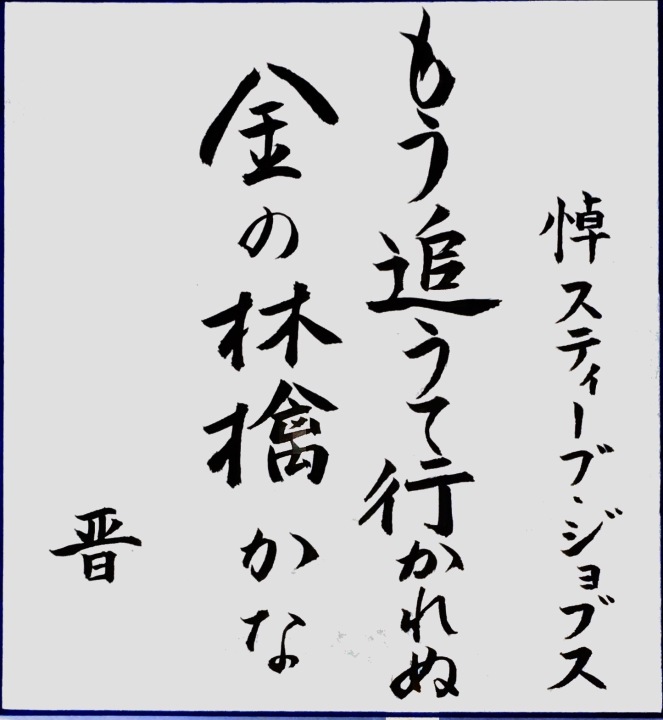 悼スティーブ・ジョブス
もう追うて行かれぬ
金の林檎かな
晋